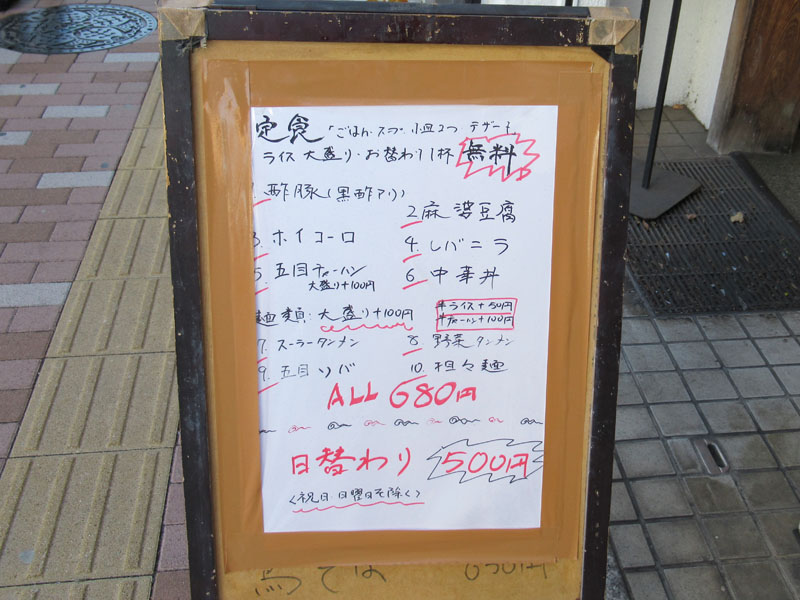 定食「ごはん・スープ・小皿2つ デザート」
ライス大盛り・お替わり1杯 無料
1. 酢豚(黒酢アリ)
2. 麻婆豆腐
3. ホイコーロ
4. レバニラ
5. 五目チャーハン
大盛り+100円
6. 中華丼
麺類: 大盛り+100円
半ライス+50円
半チャーハン+100円
7. スーラータンメン
8. 野菜タンメン
9. 五目ソバ
10. 担々麺
ALL 680円
日替わり 500円
<祝日・日曜日を除く>